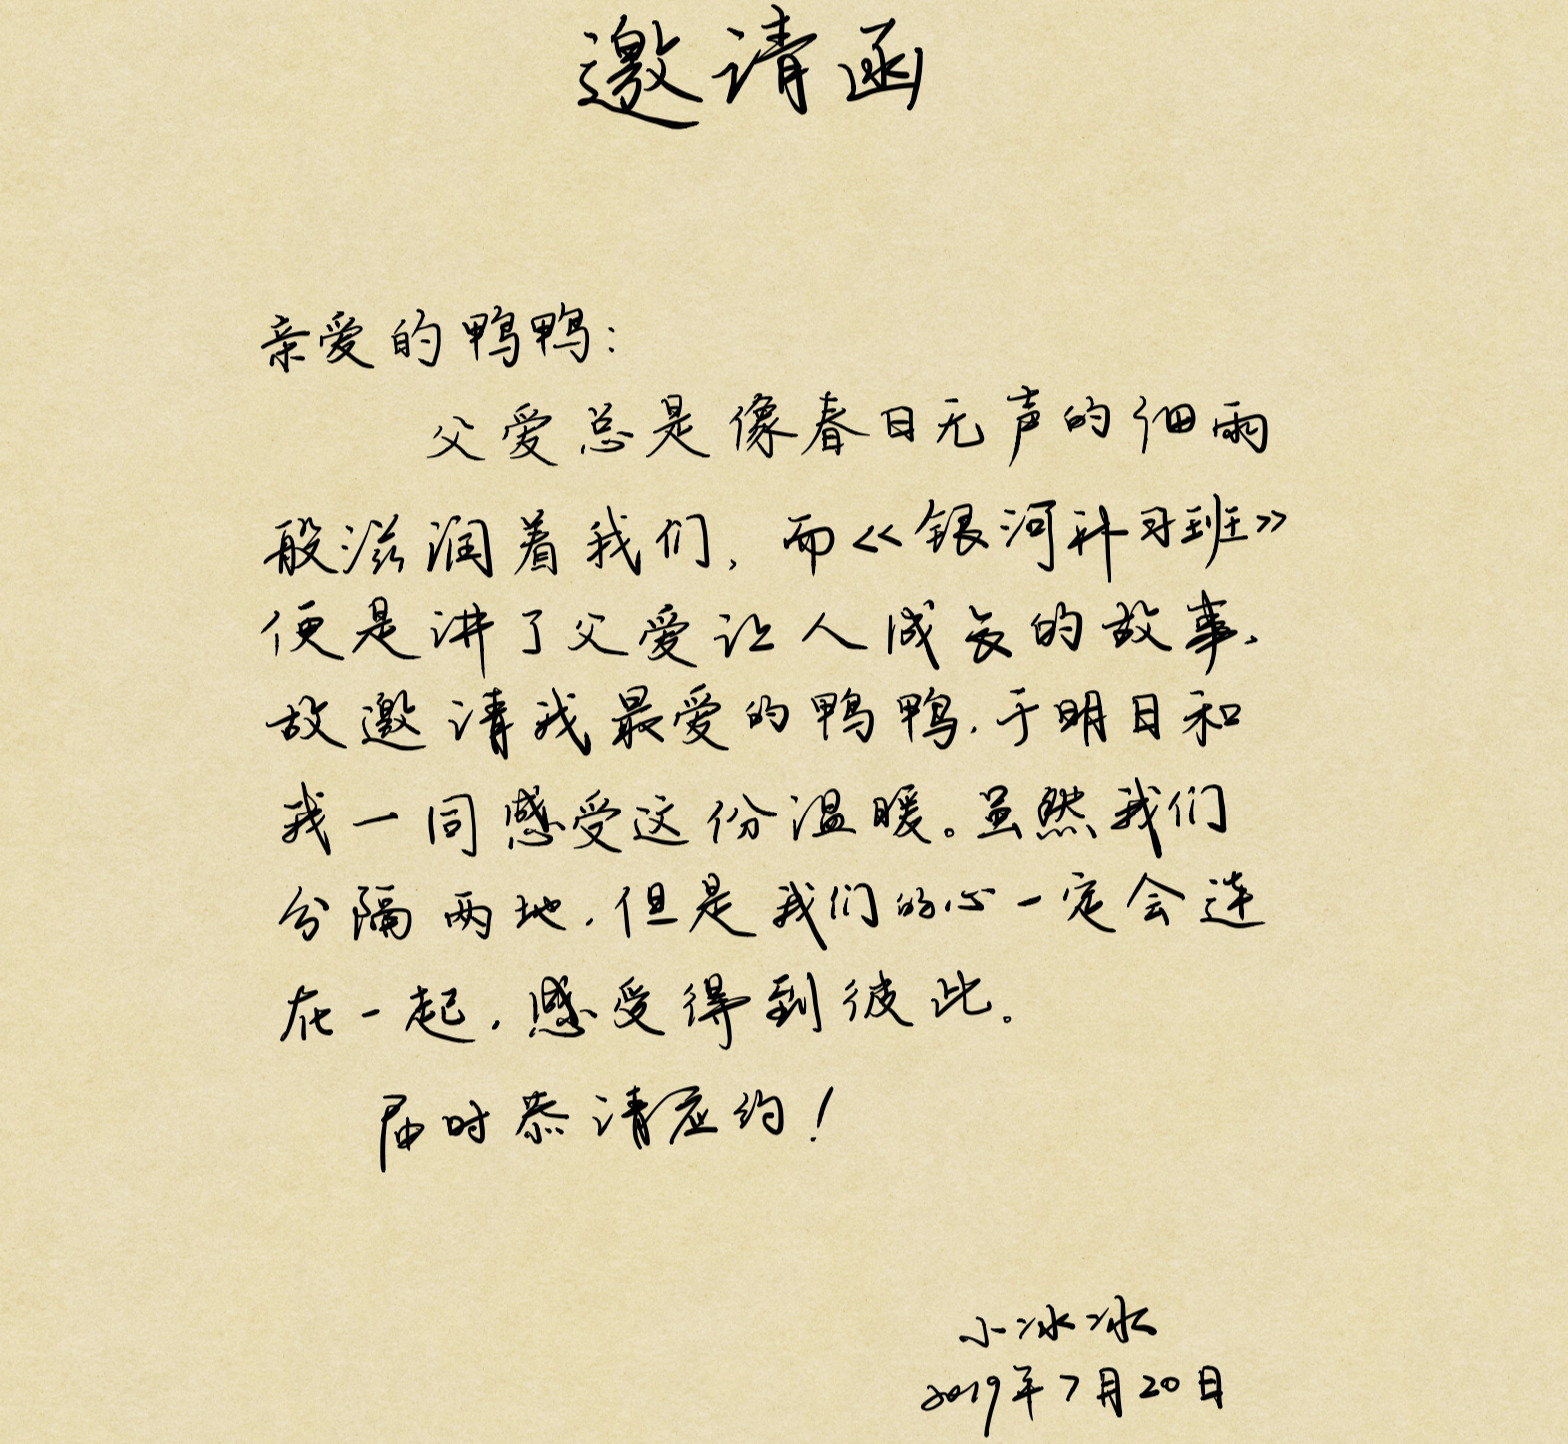 邀请函
亲爱的鸭鸭:
父爱总是像春日无声的细雨
般滋润着我们,而《银河补习班》
便是讲了父爱让人成长的故事,
故邀请我最爱的鸭鸭,于明日和
我一同感受这份温暖。虽然我们
分隔两地,但是我们的心一定会连
在一起,感受得到彼此。
届时恭请应约!
小冰冰
2019年7月20日